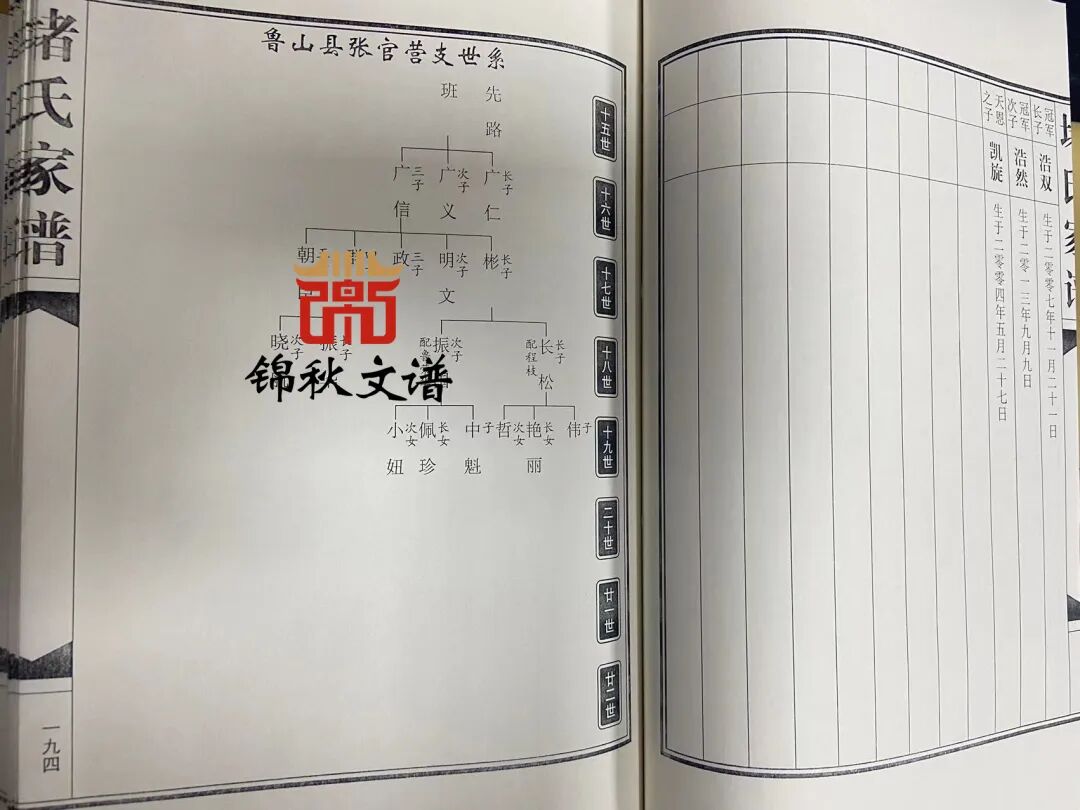 鲁山县张官营支世系
先路
班
十五世
长子 广仁
次子 广义
三子 广信
十六世
长子 彬
次子 明文
三子 政
朝
十七世
长子 长松 配程枝
次子 振
次子 晓
十八世
子 伟
长女 艳丽
次女 哲
子 中魁
长女 佩珍
次女 小妞
十九世
二十世
廿一世
廿二世
氏家谱
一九四
锦秋文谱
冠军长子 浩双 生于二零零七年十一月二十一日
冠军次子 浩然 生于二零一三年九月九日
天恩之子 凯旋 生于二零零四年五月二十七日